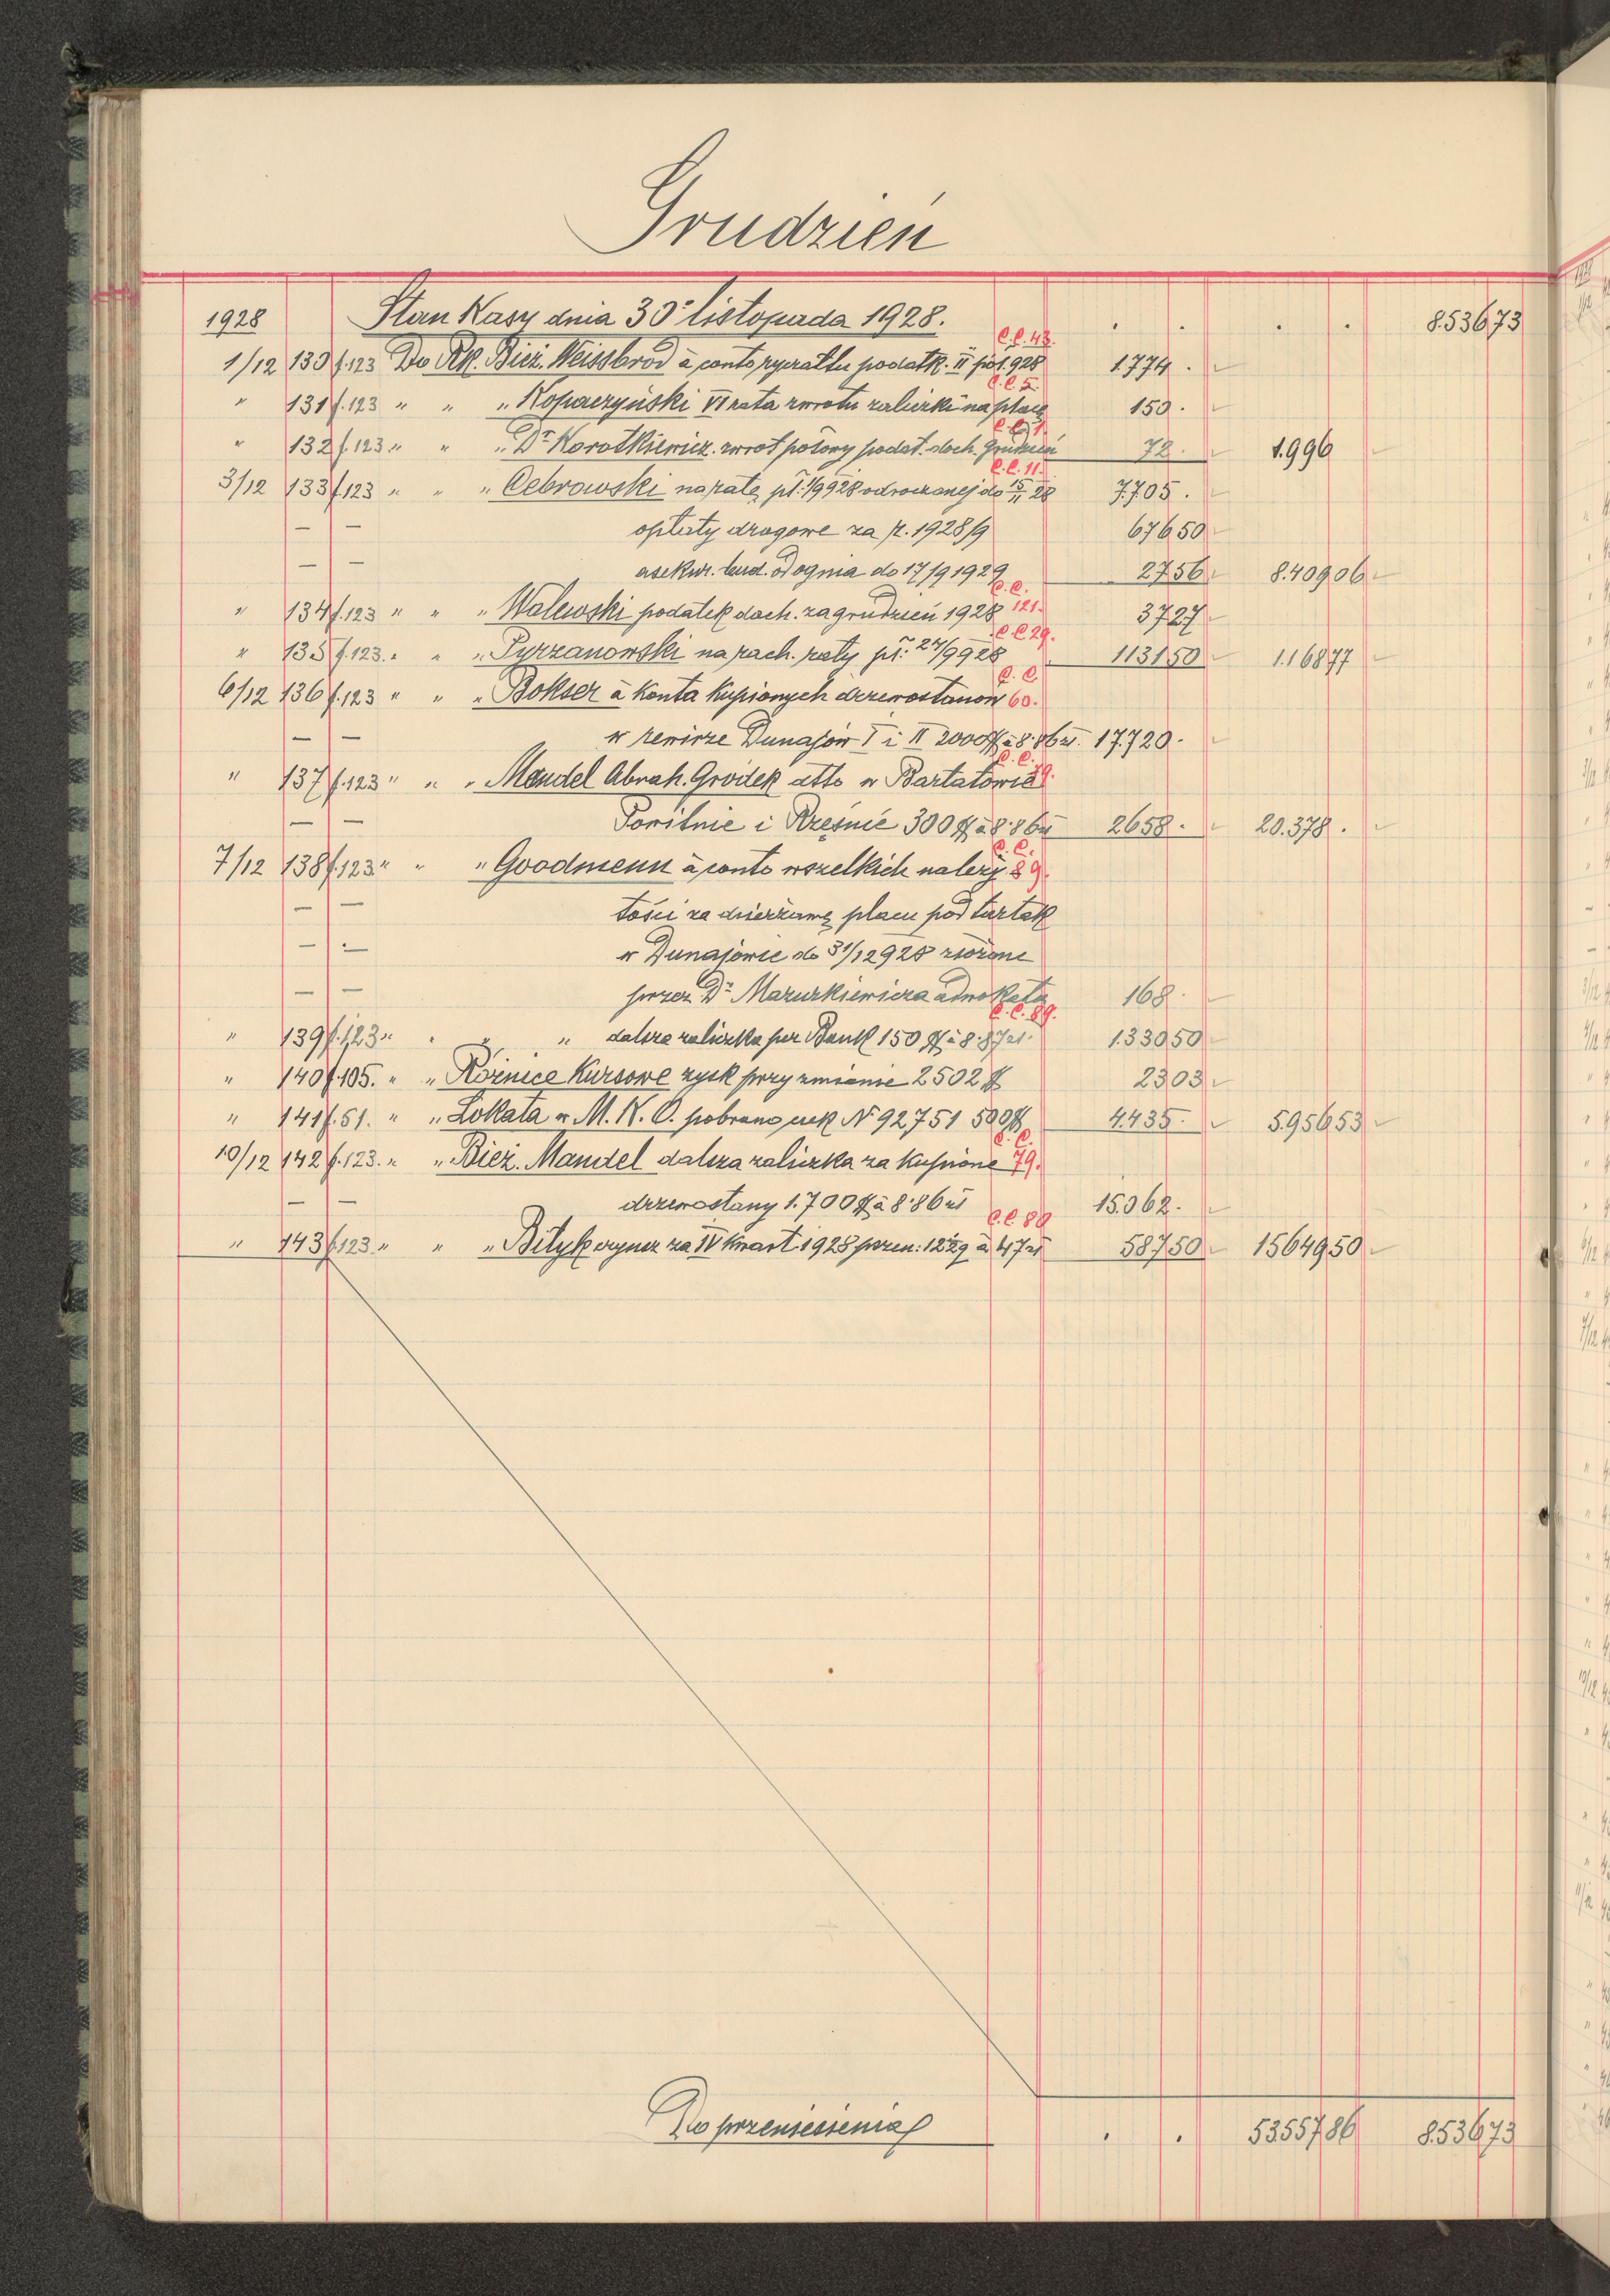 Grudzień
1928 Stan Kasy dnia 30 listopada 1928. . . . . 8.536 73
C.C. 43.
1/12 130 f. 123 Do Rk. Bież. Weissbrod à conto ryczałtu podatk. II poł. 928 1.774 .
C.C. 5.
" 131 f. 123 " " " Kopaczyński VI rata zwrotu zaliczki na płacę 150 .
C.C. 1.
" 132 f. 123 " " " Dr Korotkiewicz. zwrot połowy podat. doch. Grudzień 72 . 1.996
C.C. 11.
3/12 133 f. 123 " " " Cebrowski na ratę pł: 1/9 928 odroczonej do 15/11 28 7.705 .
— — opłaty drogowe za r. 1928/9 676 50
— — asekur. bud. od ognia do 17/9 1929 27 56 8.409 06
C.C. 121.
" 134 f. 123 " " " Walewski podatek doch. za grudzień 1928 37 27
C.C. 29.
" 135 f. 123. " " " Pyrzanowski na rach. raty pł: 24/9 928 1131 50 1.168 77
C.C. 60.
6/12 136 f. 123 " " " Bokser à Konta Kupionych drzewostanów
— — w rewirze Dunajów I i II 2000 $ à 8.86 zł. 17.720 .
C.C. 79.
" 137 f. 123 " " " Mandel Abrah. Gródek dtto w Bartatowie
— — Powitnie i Rzęśnie 300 $ à 8.86 zł 2658 . 20.378 .
C.C. 89.
7/12 138 f. 123 " " " Goodmenn à conto wszelkich należy
— — tości za dzierżawę placu pod tartak
— — w Dunajowie do 31/12 928 złożone
— — przez Dr Mazurkiewicza adwokata 168 .
C.C. 89.
" 139 f. 123 " " " dalsza zaliczka per Bank 150 $ à 8.87 zł. 1.330 50
" 140 f. 105. " " Różnice Kursowe zysk przy zmianie 2502 $ 23 03
" 141 f. 51. " " Lokata w M. K. O. pobrano czek No 92751 500 $ 4.435 . 5.956 53
C.C. 79.
10/12 142 f. 123. " " Bież. Mandel dalsza zaliczka za Kupione
— — drzewostany 1.700 $ à 8.86 zł 15.062 .
C.C. 80
" 143 f. 123 " " " Bityk czynsz za IV Kwart. 1928 pszen: 12½ q à 47 zł 587 50 15649 50
Do przeniesienia . . 53557 86 8.536 73